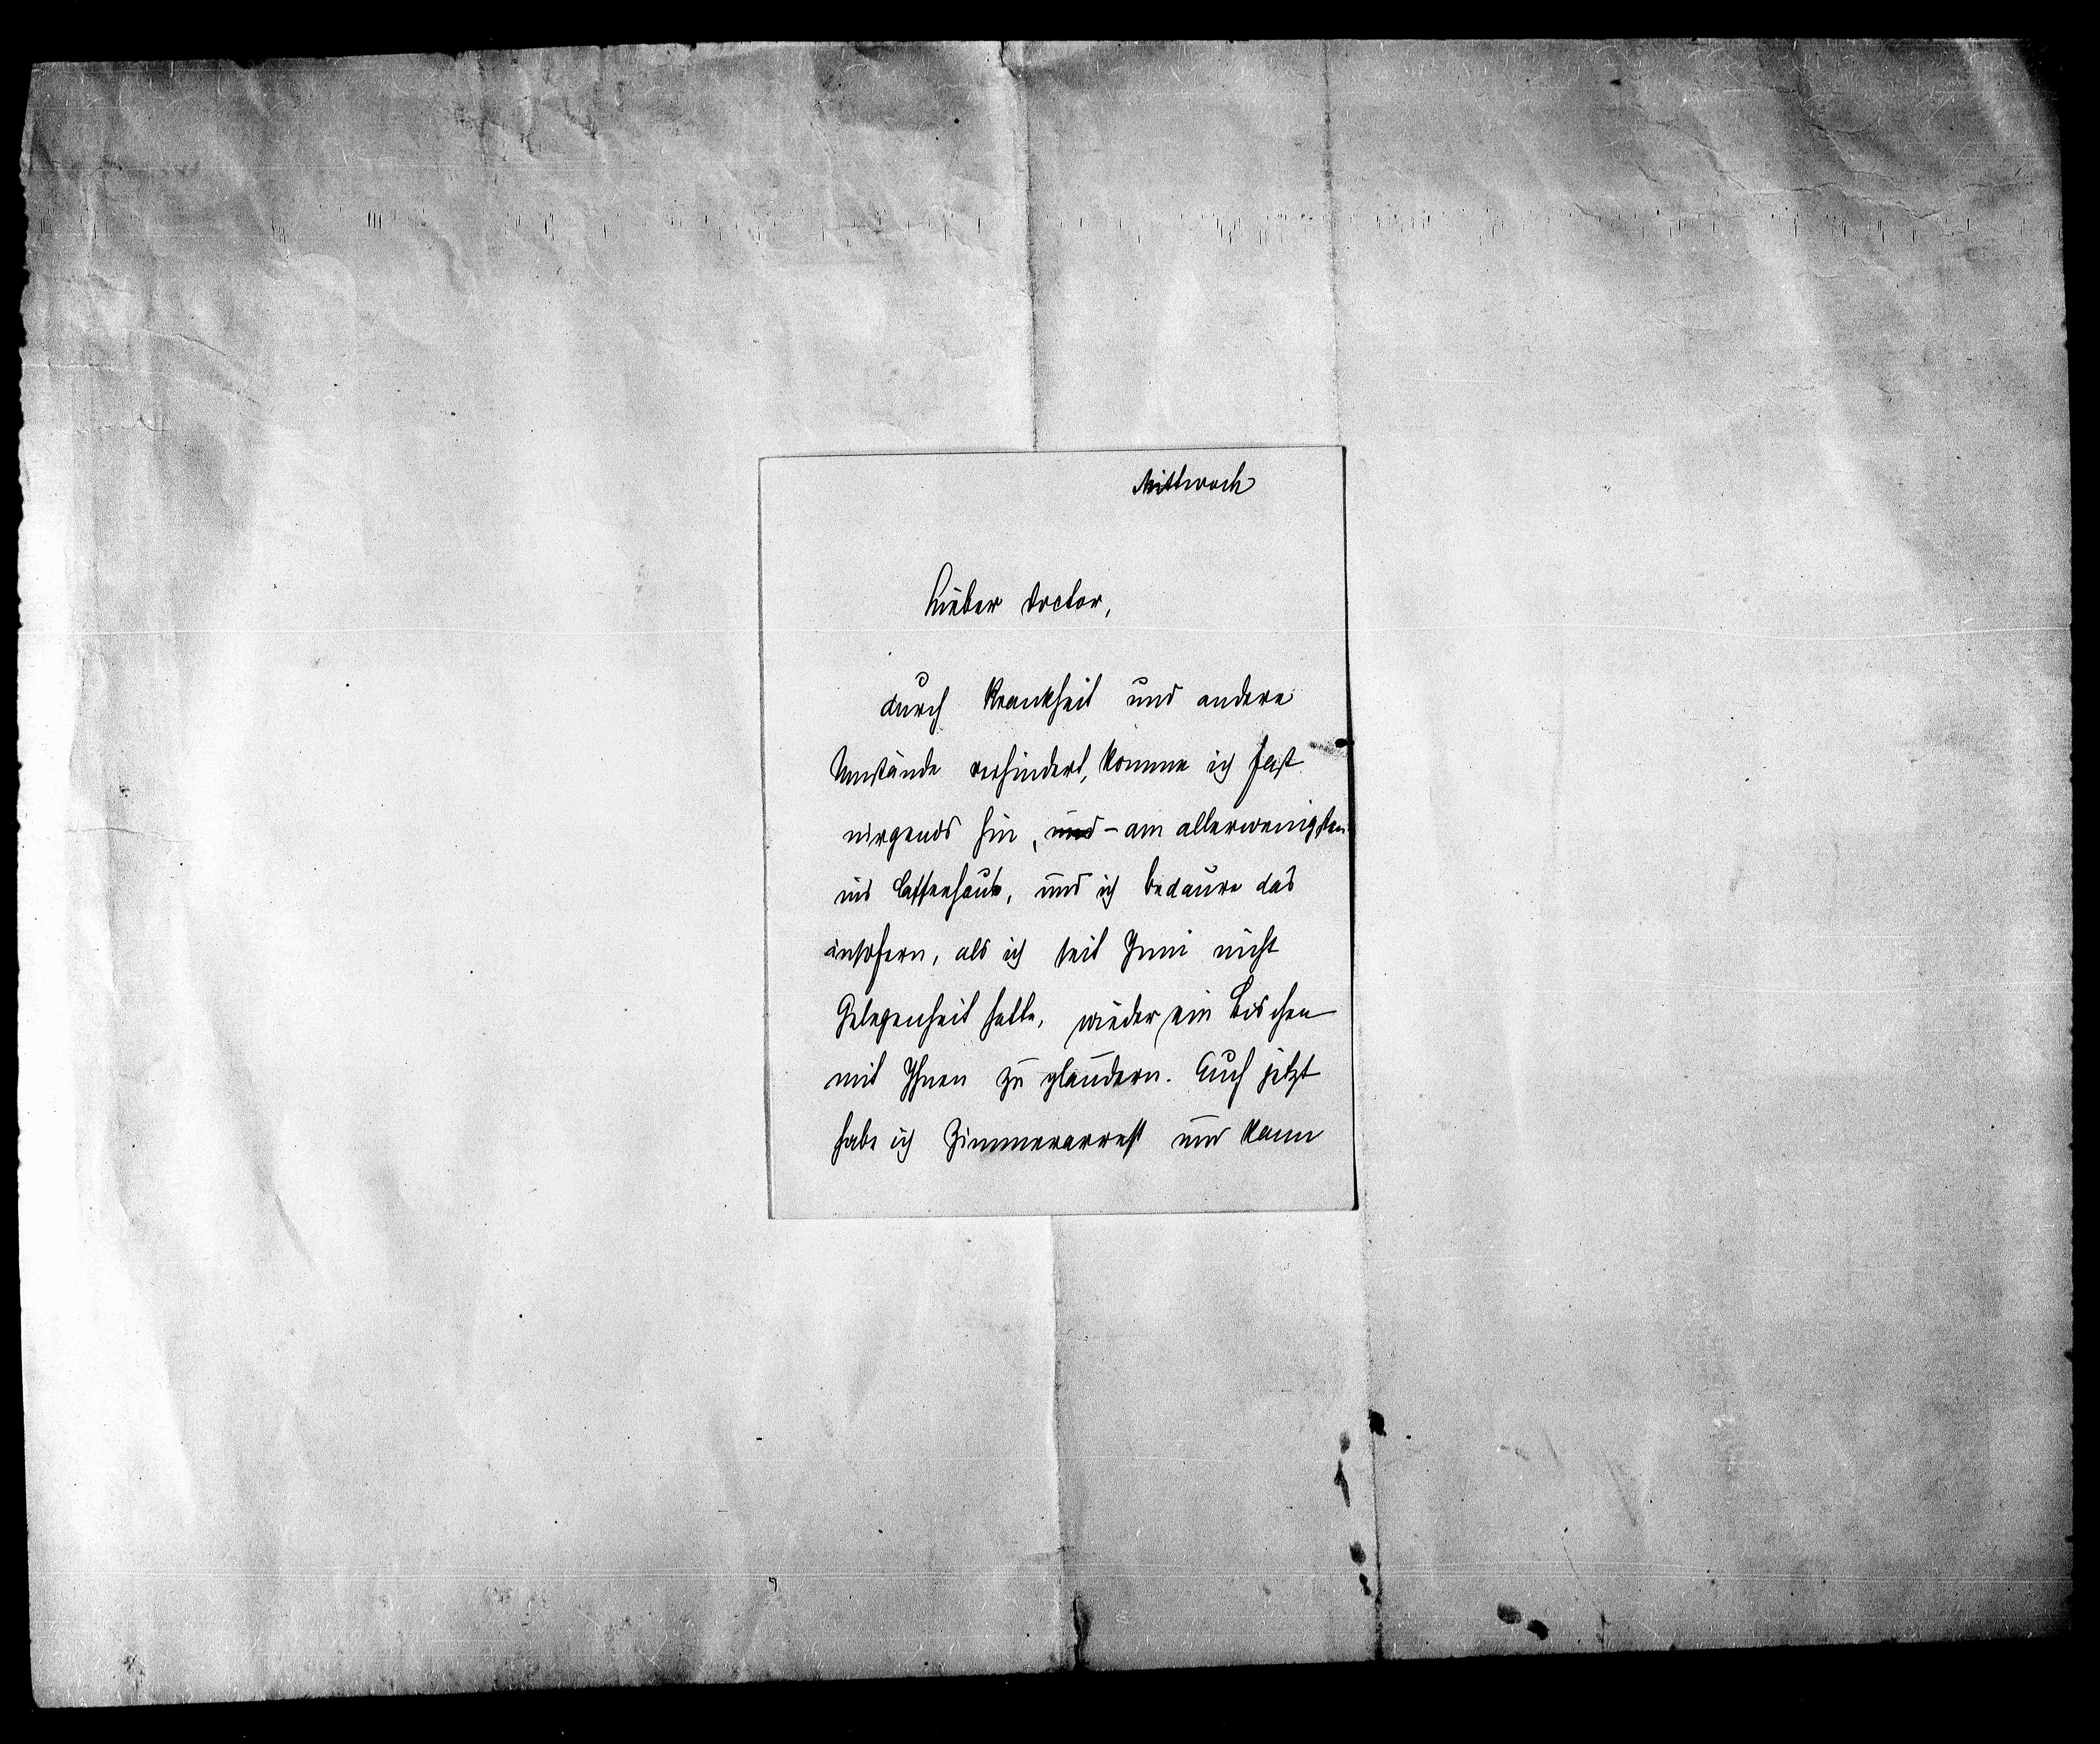 Mittwoch
Lieber Doctor,
durch Krankheit und andere
Umstände verhindert, komme ich fast
nirgends hin, und – am allerwenigsten
ins Caffeehaus, und ich bedaure das
insofern, als ich seit Juni nicht
Gelegenheit hatte, wieder ein Bischen
mit Ihnen zu plaudern. Auch jetzt
habe ich Zimmerarrest und kann